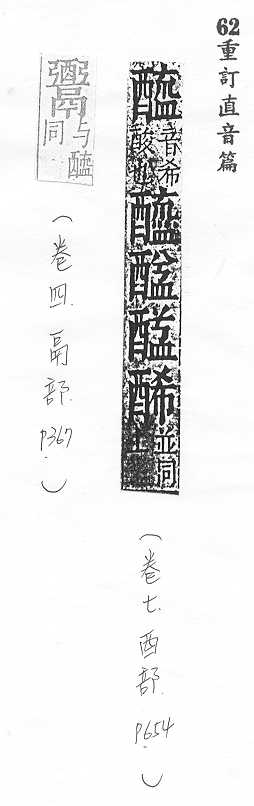 62重訂直音篇
醯音希酸也醯醘並同
(卷七.酉部.p654)
与醯同
(卷四.鬲部.p367)